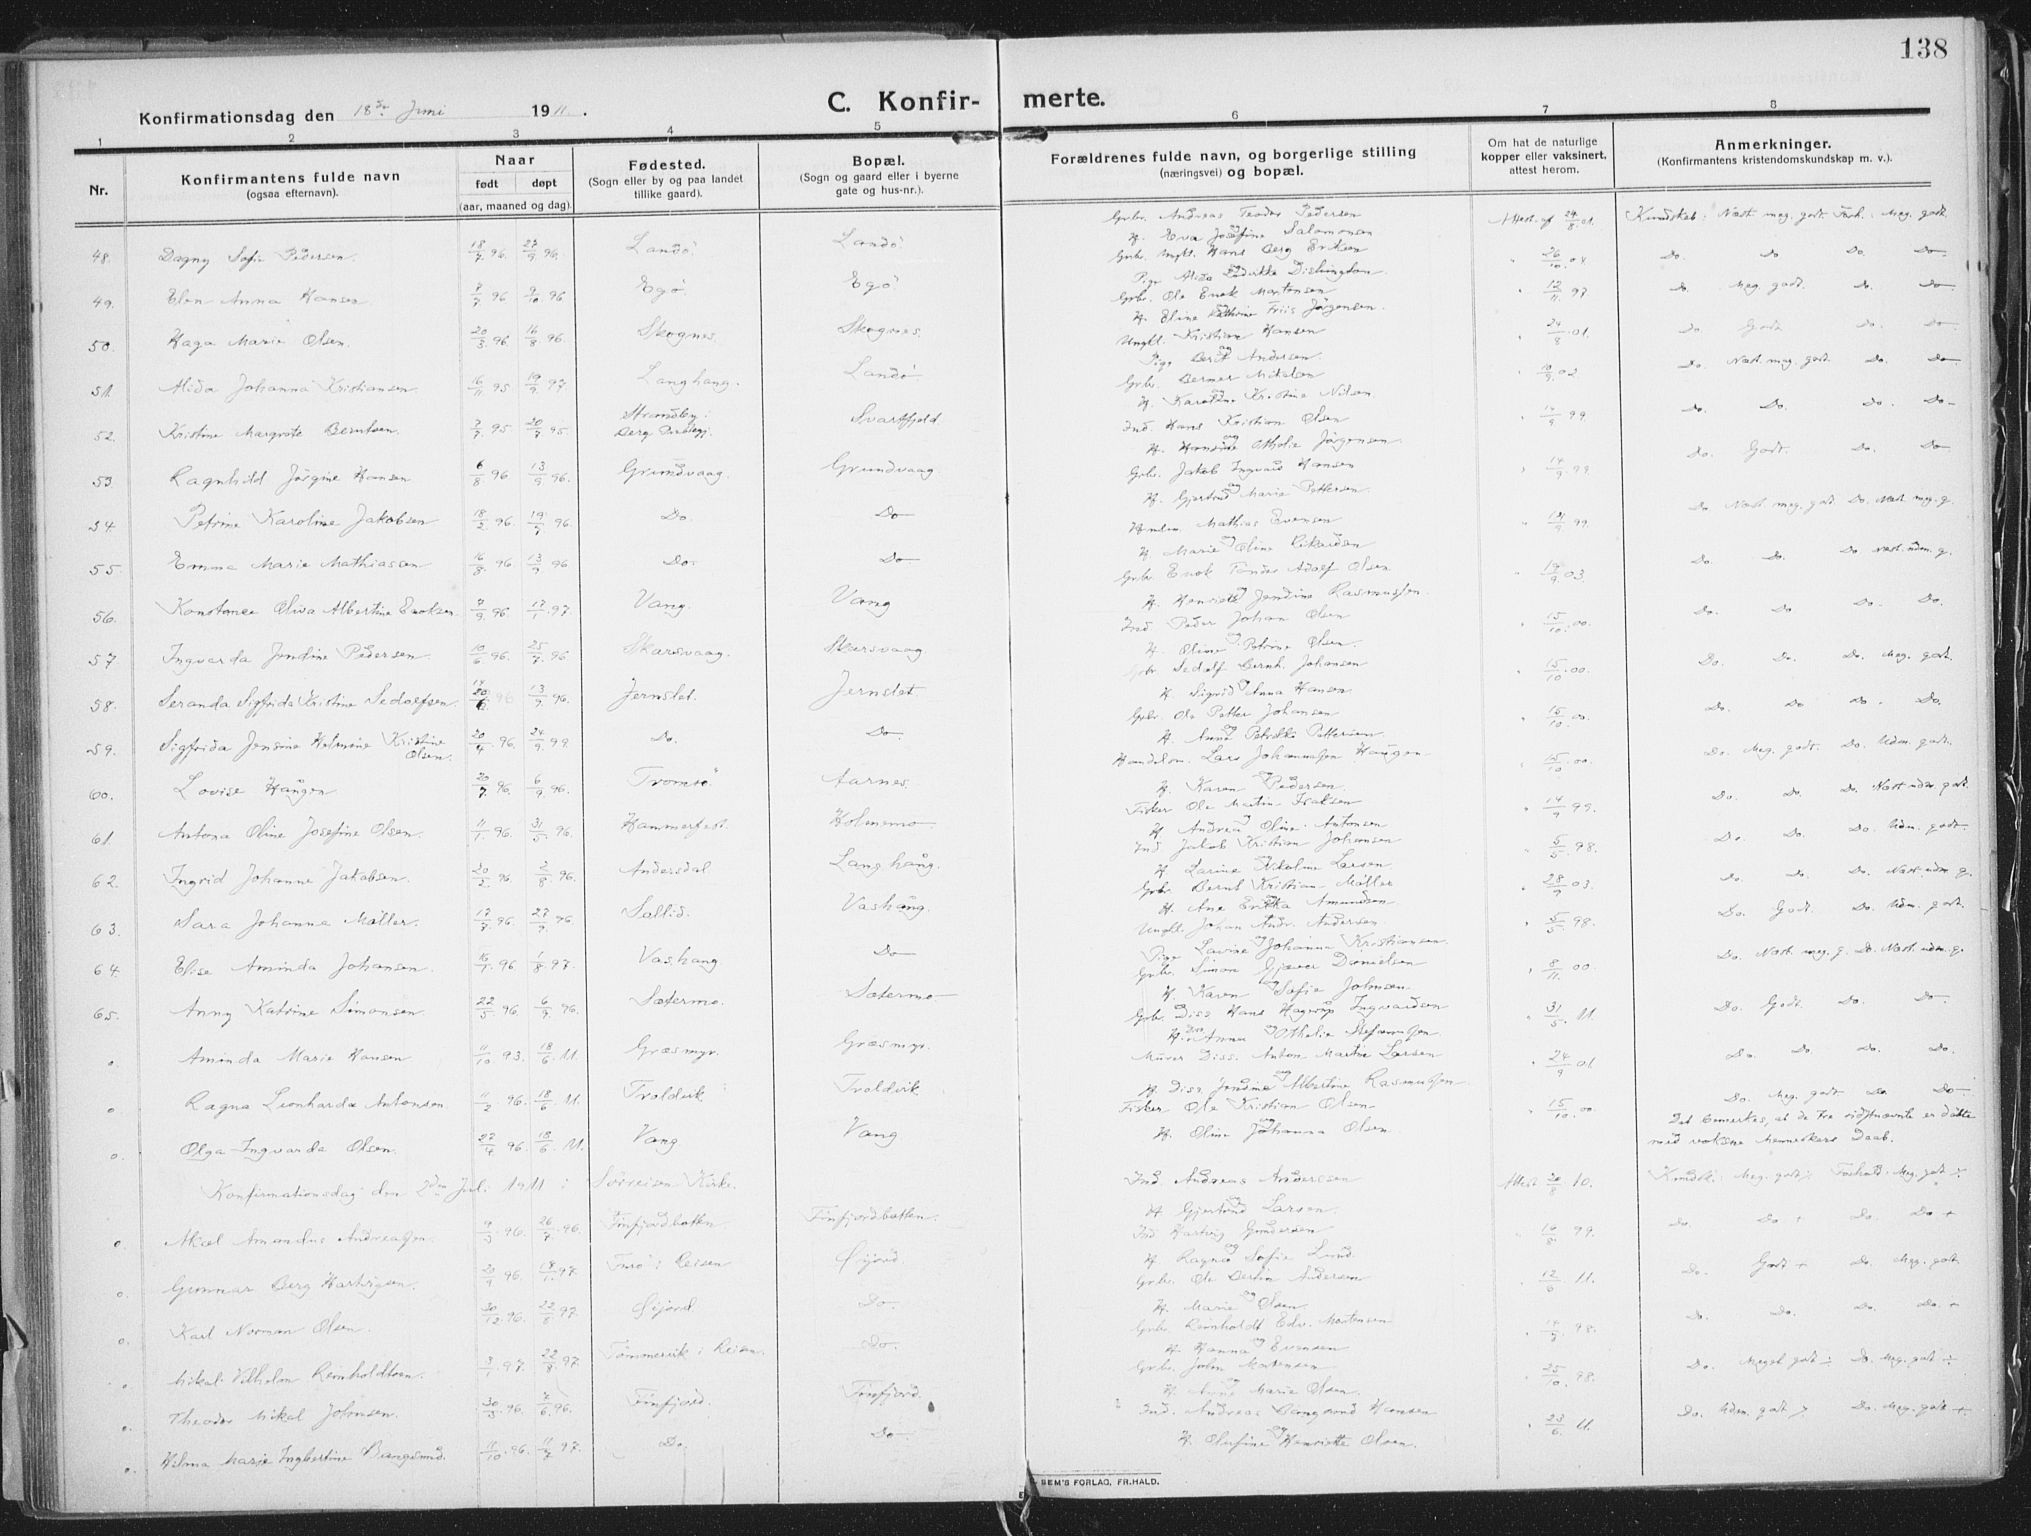 138
C. Konfir- merte.
Konfirmationsdag den 18de Juni 1911.
1 2 3 4 5 6 7 8
Nr.
Konfirmantens fulde navn
(ogsaa efternavn).
Naar
født døpt
(aar, maaned og dag).
Fødested.
(Sogn eller by og paa landet
tillike gaard).
Bopæl.
(Sogn og gaard eller i byerne
gate og hus-nr.).
Forældrenes fulde navn, og borgerlige stilling
(næringsvei) og bopæl.
Om hat de naturlige
kopper eller vaksinert,
attest herom.
Anmerkninger.
(Konfirmantens kristendomskundskap m. v.).
48. Dagny Sofie Pedersen. 18/7 96. 27/9 96. Landö. Landö. Grbr. Andreas Teodor Pedersen
H. Eva Josefine Salomonsen Attest af 24/8 01. Kundskab: Næst meg. godt. Forh.: Meg. godt.
49. Elen Anna Hansen 9/10 96 Egö Egö Grbr. Ungkl. Hans Berg Eriksen
Pige Alida 26/10 Do. Do Do. Do
50. Haga Marie Olsen. 20/3 96. 16/8 96. Skognes. Skognes. Grbr. Ole Enok Martensen
H. Eline Friis Jörgensen. 12/11 97 Do. Meg. godt. Do. Do
51. Alida Johanna Kristiansen. 16/11 95 19/9 97 Langhang. Landö Ungkl. Kristian Hansen
Pige Berit Andersen. 24/8 01. Do Godt Do. Do
52. Kristine Margrete Berntsen. 7/7 95 20/7 95. Strandby: Berg Svartfjeld. Grbr. Berner Mikalsen
H. Karoline Kristine Nilsen. 10/9 02 Do. Næst meg. godt. Do. Do
53. Ragnhild Jörgine Hansen 6/8 96 13/9 96. Grundvaag. Grundvaag. Ind. Hans Kristian Olsen
H. Hansine Othelie Jörgensen. 14/9 99. Do. Do. Do. Do
54. Petrine Karoline Jakobsen 18/2 96. 19/7 96. Do. Do Grbr. Jakob Ingvald Hansen
H. Gjertrud Marie Pettersen. 14/9 99. Do. Godt. Do. Do
55. Emma Marie Mathiassen 16/8 96 13/9 96 Do. Do Mathias Evensen
H. Marie Oline Rikardsen 14/9 99. Do Næst meg. godt Do. Næst meg. g.
56. Konstance Oliva Albertine Enoksen. 7/9 96. 17/1 97 Vang. Vang Grbr. Enok Adolf Olsen
H. Henriette Jendine Rasmussen. 14/9 03. Do. Do. Do. Næst. udm. g.
57 Ingvarda Jendine Pedersen. 10/6 96. 25/7 96 Skarsvaag. Skarsvaag Ind. Peder Johan Olsen
H. Oline Petrine Olsen. 15/10 00. Do. Do Do. Do.
58. Seranda Sigfrida Kristine Sedolfsen. 13/9 96. Jernslet. Jernslet Grbr. Sedolf Bernh. Johansen
H. Sigrid Anna Hansen. 15/10 00 Do. Do. Do. Meg. godt.
59. Sigfrida Jensine Helmine Kristine Olsen. 24/9 99. Do. Do Grbr. Ole Petter Johansen
H. Anna Petrikke Pettersen. 15/10 00. Do. Do Do. Do.
60. Lovise Haugen 20/7 96. 6/9 96. Tromsö Aarnes. Handelsm. Lars Johannessen Haugen
H. Karen Pedersen. 15/10 00. Do. Meg. godt. Do. Udm. godt.
61. Antona Oline Josefine Olsen. 11/1 96. 31/5 96. Hammerfest. Holmemo. Fisker Ole Martin Isaksen
H. Andrea Oline Antonsen 14/9 99. Do. Do. Do. Næst udm. godt.
62. Ingrid Johanne Jakobsen. 20/2 96. 2/8 96. Andersdal Langhang. Ind. Jakob Kristian Johansen
H. Larine Larsen 5/5 98. Do. Do. Do. Udm. godt.
63. Sara Johanna Möller. 17/7 96. 27/9 96 Sollid. Vashang. Grbr. Bernt Kristian Möller
H. Ane Erikka Amundsen 28/9 03. Do. Do. Do. Næst udm g.
64. Elise Aminda Johansen. 1/8 97. Vashang Do Ungkl. Johan Andr. Andersen.
Pige Lavine Johanna Kristiansen. 5/5 98. Do. Godt. Do. Udm. godt.
65. Anny Katrine Simonsen. 22/5 96. 6/9 96. Sætermo. Sætermo Grbr. Simon Gjæver Danielsen
H. Karen Sofie Johnsen 8/11 00. Do. Næst meg. g. Do. Næst. udm. g.
o. Aminda Marie Hansen 11/10 93. 18/6 11. Græsmyr. Græsmyr. Grbr. Diss Hans Hagerup Ingvardsen
H. Anna Othelie 31/5 11. Do Godt. Do. Do
o Ragna Leonharda Antonsen 11/2 96. 18/6 11. Troldvik Troldvik Murer Diss. Anton Martin Larsen
H. Diss Jendine Albertine Rasmussen 24/9 01. Do. Do. Do. Do.
o. Olga Ingvarda Olsen. 27/4 96. 18/6 11. Vang Vang Fisker Ole Kristian Olsen
H. Oline Johanna Olsen. 15/10 00. Do. Meg. godt Do Do
Det bemerkes, at de tre sidstnævnte er döbte
med voksne Menneskers Daab.
Konfirmationsdag den 2den Juli 1911 i Sørreisen Kirke.
o. Aksel Amandus Andreassen. 9/3 96. 26/7 96. Finfjordbotten. Finfjordbotten. Ind. Andreas Andersen
H. Gjertrud Larsen. Attest 20/8 10. Kundsk.: Meg. godt ÷ Forhold: Meg. godt ÷
o. Gunnar Berg Hartvigsen. 20/9 96. 18/1 97. i Reisen Öijord Ind. Hartvig Gundersen
H. Ragna Sofie Lund. 16/8 99. Do. Do + Do. Do +
o. Karl Norman Olsen. 30/12 96. 22/8 97. Öijord Do. Grbr. Ole Bertin Andersen
H. Marie Olsen. 12/6 11. Do. Godt + Do. Meg. godt
. Mikal Vilhelm Reinholdtsen. 3/1 97. 22/8 97. Tömmervik i Reisen. Do. Grbr. Reinholdt Edv. Mortensen
H. Hanna Evensen 98. Do. Do. Do. Do +
o. Theodor Mikal Johnsen. 30/3 96. 7/6 96. Finfjord. Finfjord. Grbr. John Mortensen
H. Anne Marie Olsen. 25/10 98. Do. Meget godt ÷ Do. Meg. godt ÷
o. Hilma Marie Ingbertine Bangsund. 11/10 96. 11/7 97. Do. Do Ind. Andreas Bangsund Hansen
H. Olufine Henriette Olsen. 23/6 11. Do. Udm. godt Do. Meg. godt +
SEM'S FORLAG, FR.HALD.